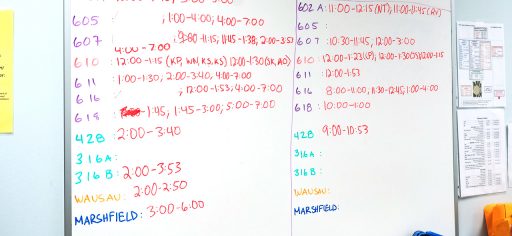 605 ; 1:00-4:00; 4:00-7:00
607 ; 9:00-11:15, 11:45-1:38, 2:00-3:53
4:00-7:00
610 : 12:00-1:15 (KP, WN, KS, KS) 12:00-1:30 (SK, AO)
611 : 1:00-1:30; 2:00-3:40, 4:00-7:00
616 ; 12:00-1:53; 4:00-7:00
618 : -1:45, 1:45-3:00; 5:00-7:00
428 : 2:00-3:40
316A :
316B : 2:00-3:53
WAUSAU : 2:00-2:50
MARSHFIELD : 3:00-6:00
602A : 11:00-12:15 (NT), 11:00-11:45
605 :
607 : 10:30-11:45, 12:00-3:00
610 : 12:00-1:23
611 : 12:00-1:53
616 8:00-11:00, 11:30-12:45, 1:00-4:00
618 : 10:00-1:00
428 9:00-10:53
316A :
316B :
WAUSAU :
MARSHFIELD :